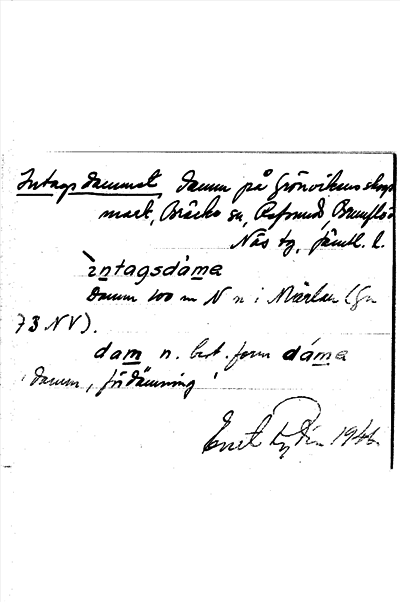 Intagsdammet damm på Grönvikens skogs
mark, Bräcke sn, Refsund, Brunflo o
Näs tg, Jämtl. l.
ìntagsdáma
Damm 100 m N n i Märlan (Gn
73 NV).
dam n. best. form dáma
'damm, fördämning'
1946